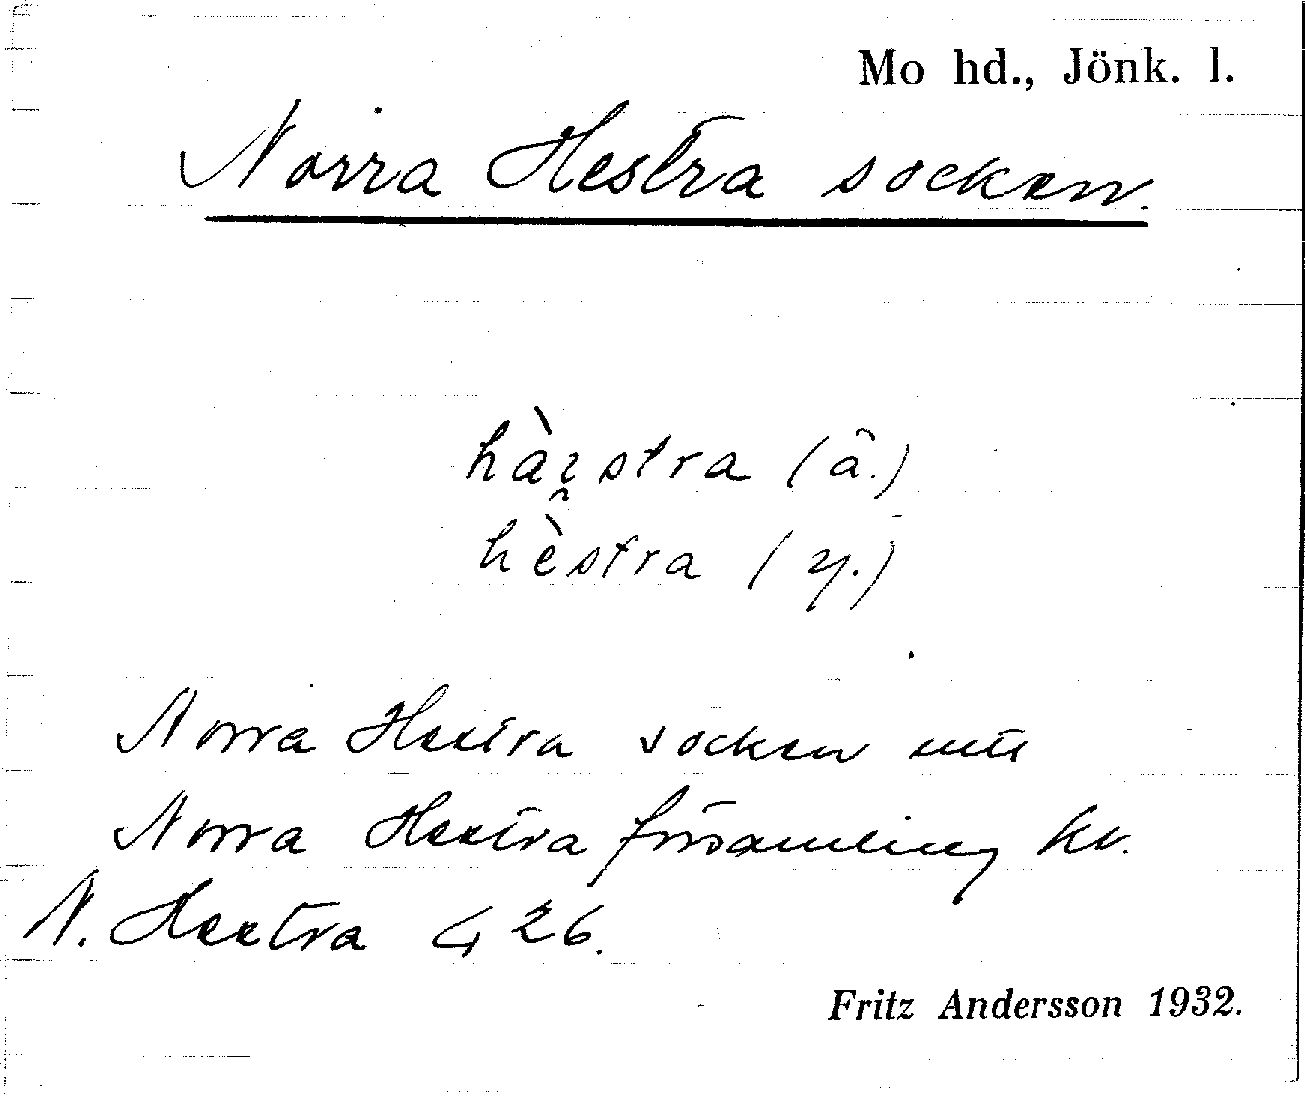 Mo hd., Jönk. l.
Norra Hestra socken.
hàı̯stra (ä.)
hèstra (y.)
Norra Hestra socken utg
Norra Hestra församling kv.
N. Hestra G 26.
Fritz Andersson 1932.